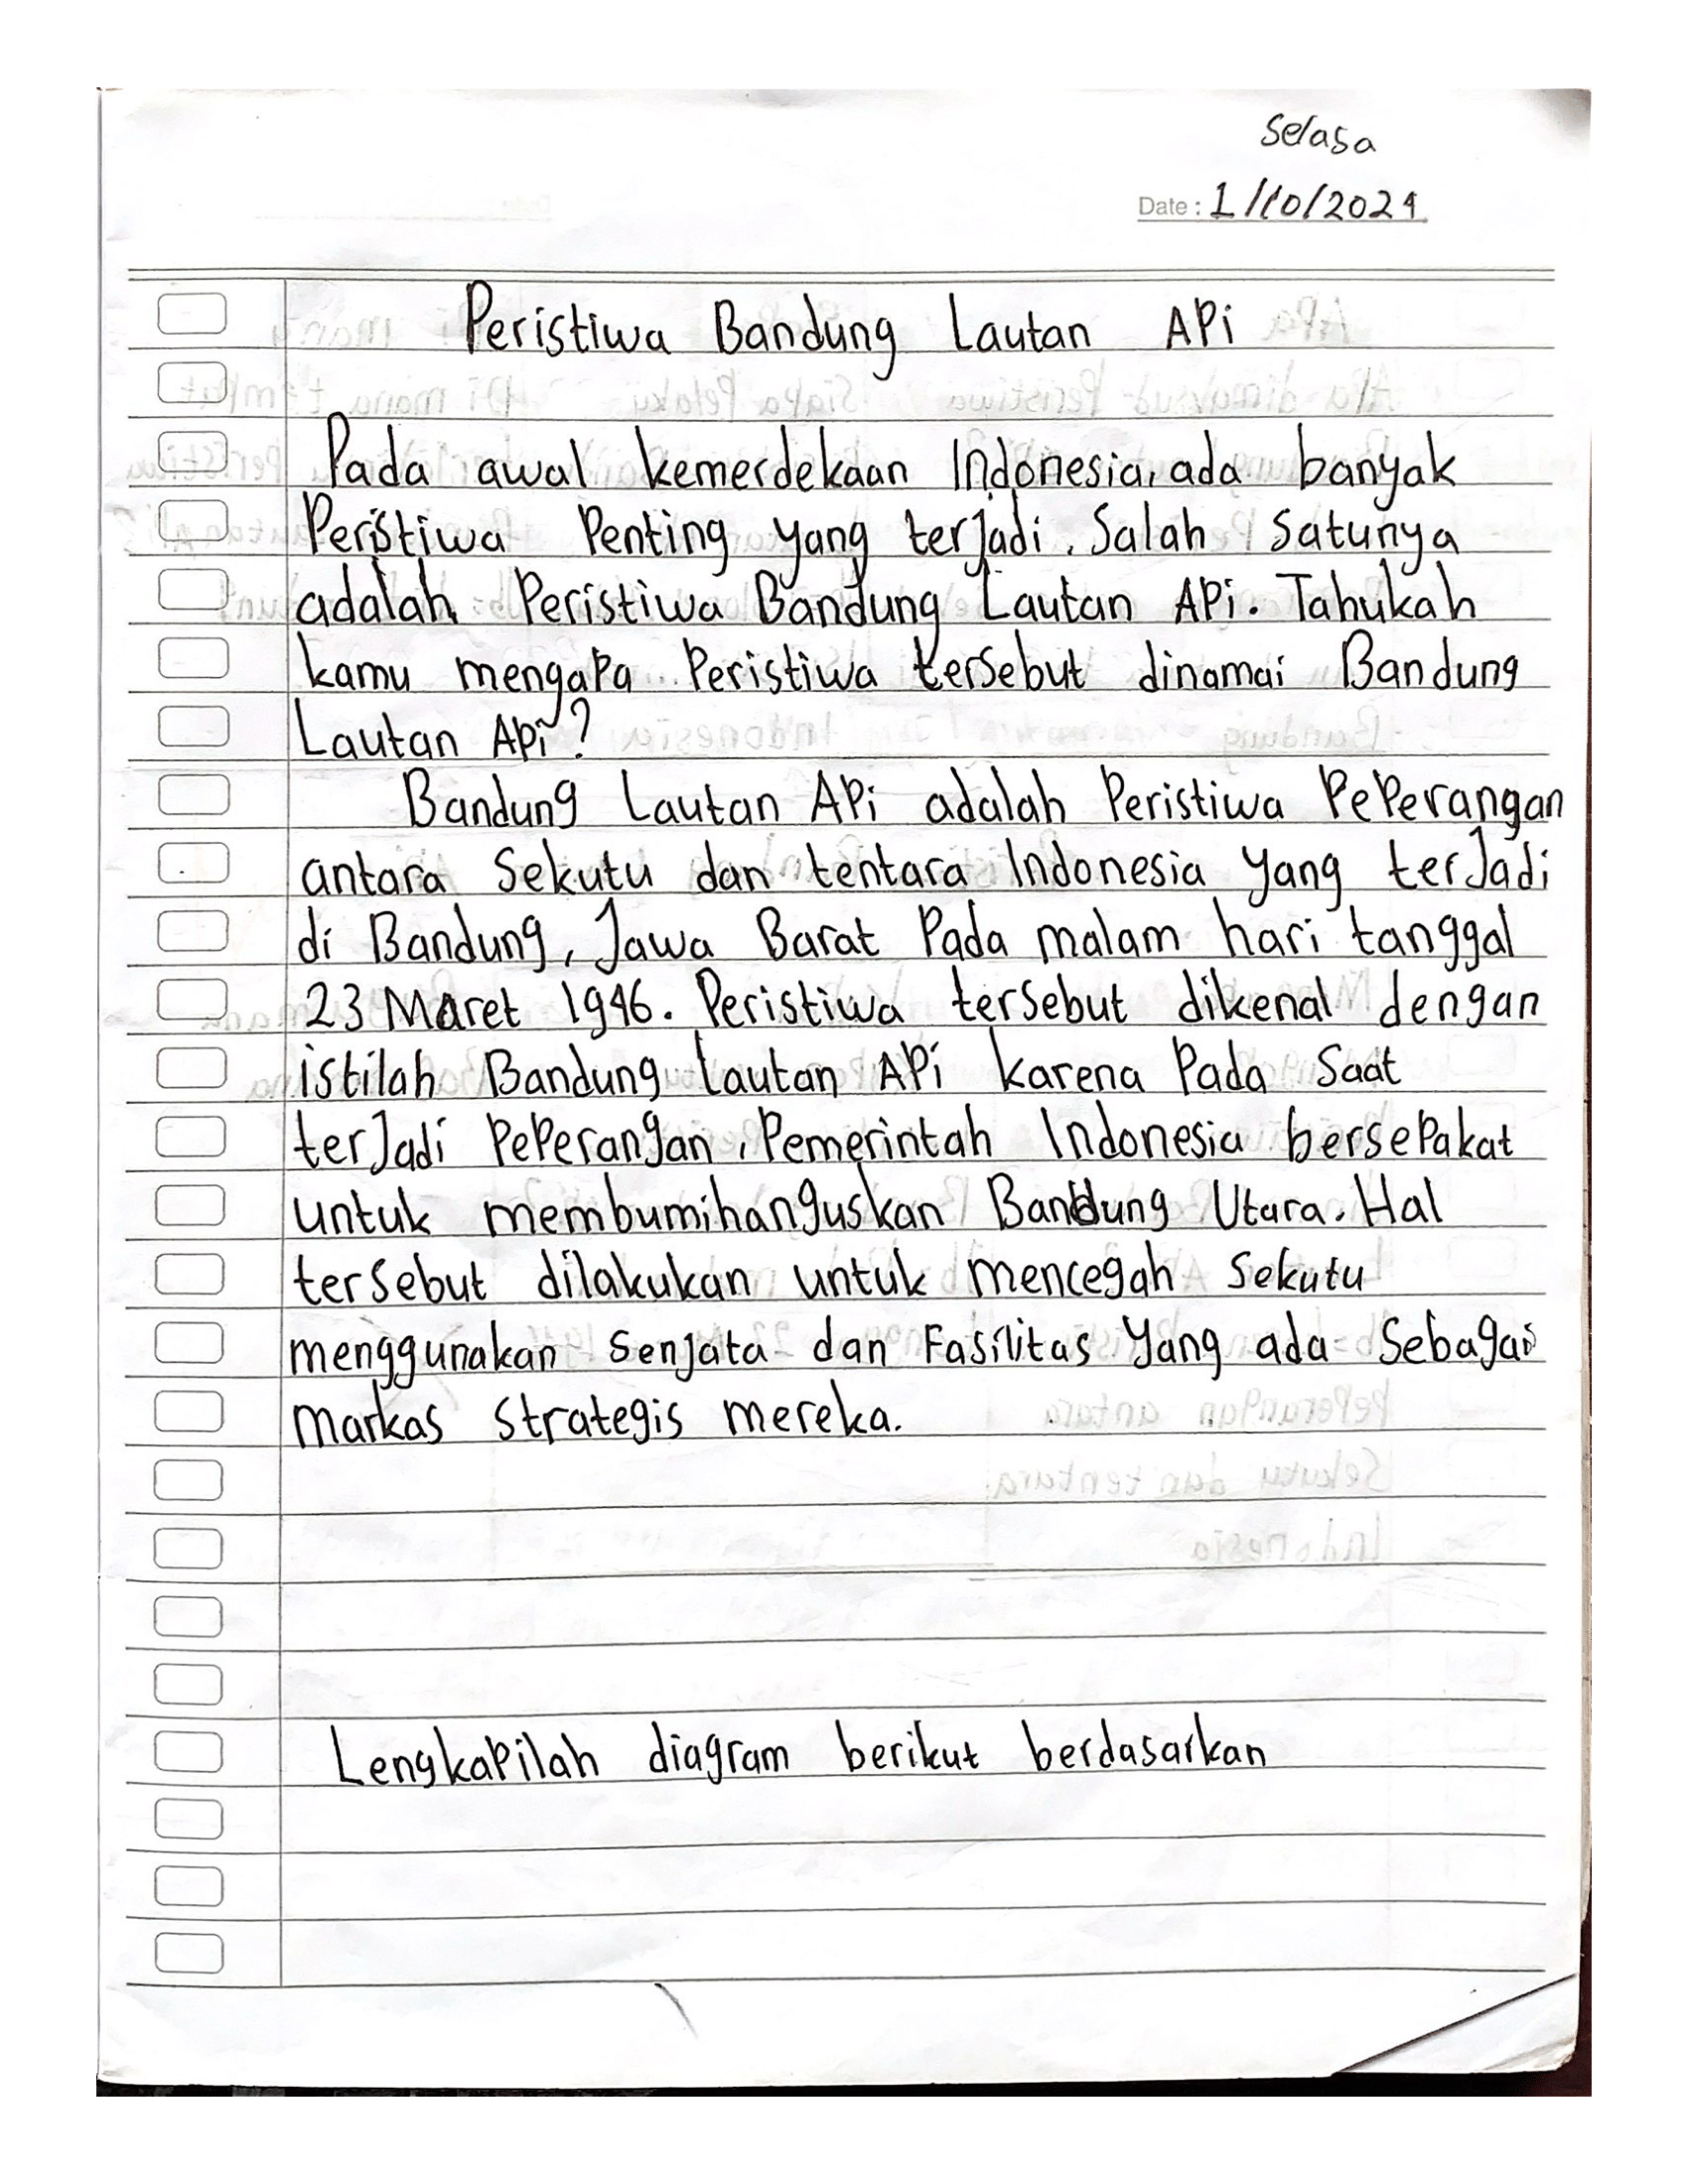 Selasa
Date : 1/10/2024
Peristiwa Bandung Lautan Api
Pada awal kemerdekaan Indonesia, ada banyak
Peristiwa Penting yang terjadi. Salah Satunya
adalah Peristiwa Bandung Lautan Api. Tahukah
kamu mengapa Peristiwa tersebut dinamai Bandung
Lautan Api?
Bandung Lautan Api adalah Peristiwa Peperangan
antara Sekutu dan tentara Indonesia yang terjadi
di Bandung, Jawa Barat Pada malam hari tanggal
23 Maret 1946. Peristiwa tersebut dikenal dengan
istilah Bandung Lautan Api karena Pada Saat
terjadi Peperangan, Pemerintah Indonesia bersepakat
untuk membumihanguskan Bandung Utara. Hal
tersebut dilakukan untuk mencegah Sekutu
menggunakan Senjata dan Fasilitas Yang ada Sebagai
markas Strategis mereka.
Lengkapilah diagram berikut berdasarkan